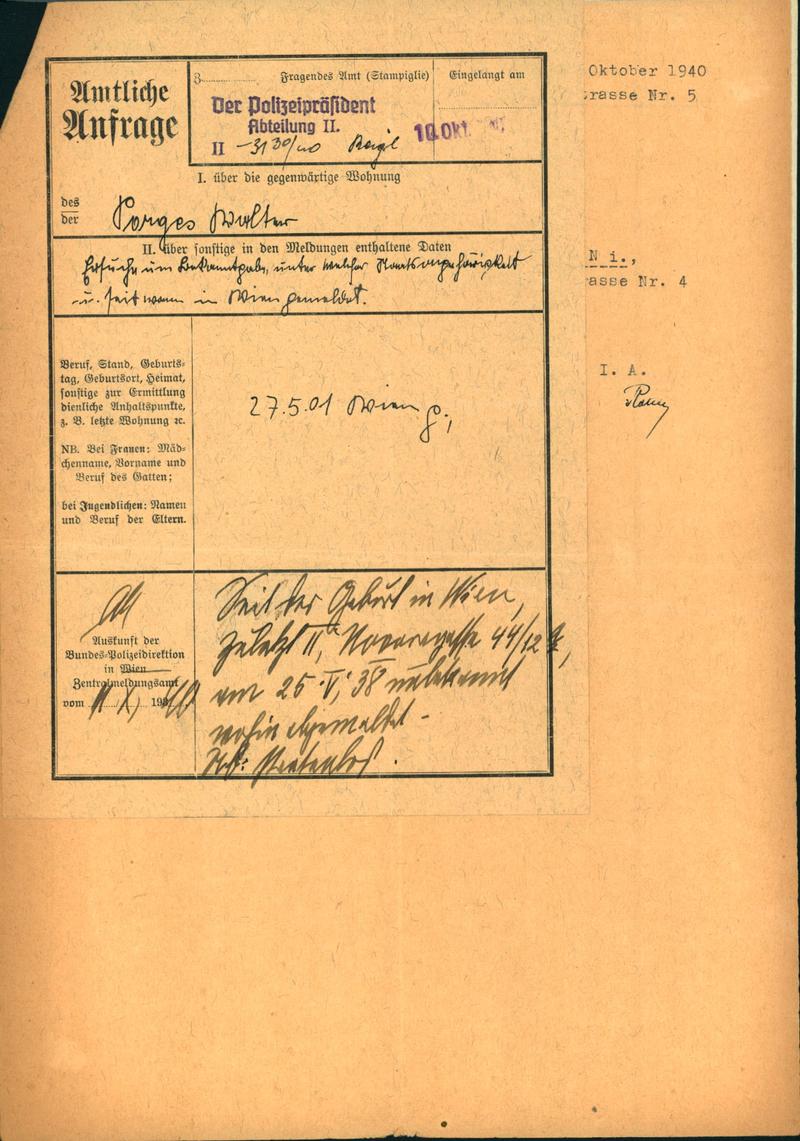 Amtliche
Anfrage
3............ Fragendes Amt (Stampiglie)
Der Polizeipräsident
Abteilung II.
II -3130/40
Eingelangt am
10. Okt.
I. über die gegenwärtige Wohnung
des
der
Porges Walter
II. über sonstige in den Meldungen enthaltene Daten
Ersuche um Bekanntgabe, unter welcher Staatsangehörigkeit
u. seit wann in Wien gemeldet.
Beruf, Stand, Geburts-
tag, Geburtsort, Heimat,
sonstige zur Ermittlung
dienliche Anhaltspunkte,
z. B. letzte Wohnung ꝛc.
NB. Bei Frauen: Mäd-
chenname, Vorname und
Beruf des Gatten;
bei Jugendlichen: Namen
und Beruf der Eltern.
27.5.01 Wien
Auskunft der
Bundes-Polizeidirektion
in Wien
Zentralmeldungsamt
vom 11/X. 1940
Seit der Geburt in Wien,
zuletzt II, Novaragasse 44/12
am 25.V.38 unbekannt
wohin abgemeldet -
St: Staatenlos.
Oktober 1940
rasse Nr. 5
N i.,
asse Nr. 4
I. A.